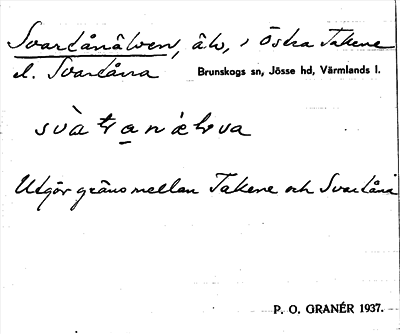 Svartånälven, älv, i Östra Takene
el. Svartåna Brunskogs sn, Jösse hd, Värmlands l.
svàtṛa̱nælva
Utgör gräns mellan Takene och Svartåna
P. O. GRANÉR 1937.